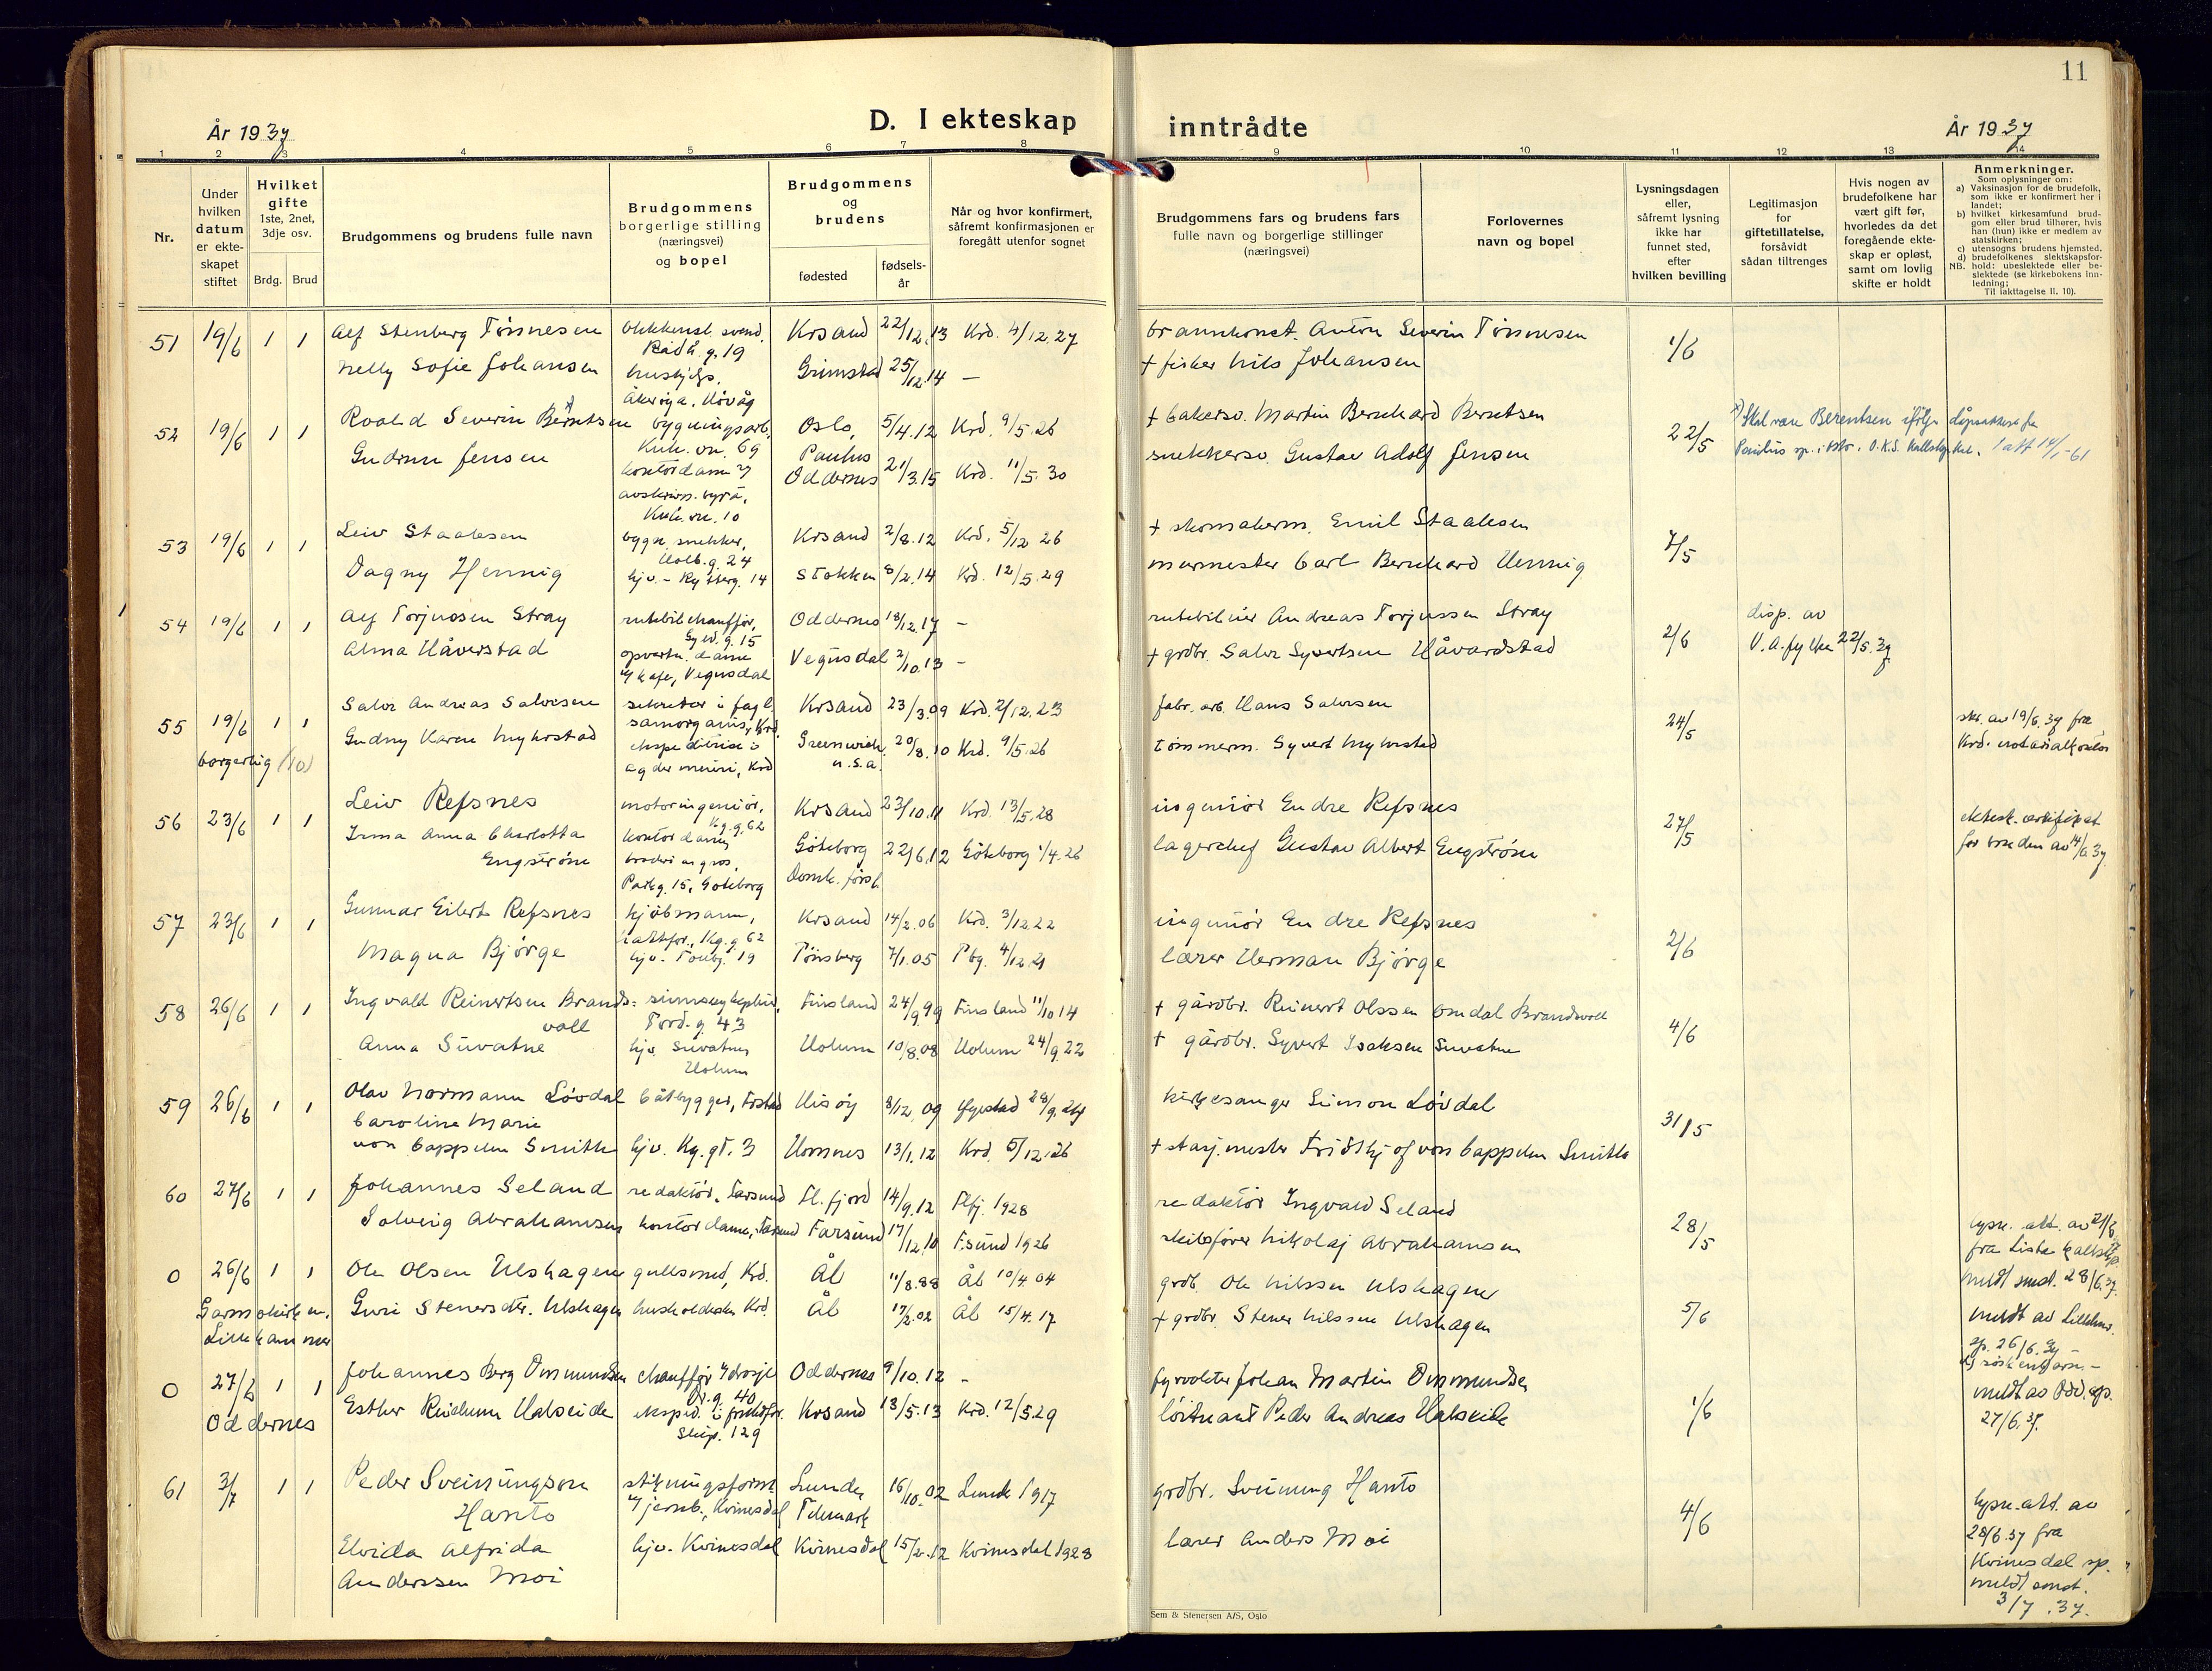 11
D. I ekteskap inntrådte
År 1937
År 1937
1 2 3 4 5 6 7 8 9 10 11 12 13 14
Nr.
Under hvilken datum er ekteskapet stiftet
Hvilket gifte 1ste, 2net, 3dje osv.
Brdg. Brud
Brudgommens og brudens fulle navn
Brudgommens borgerlige stilling (næringsvei) og bopel
Brudgommens og brudens
fødested
fødselsår
Når og hvor konfirmert, såfremt konfirmasjonen er foregått utenfor sognet
Brudgommens fars og brudens fars fulle navn og borgerlige stillinger (næringsvei)
Forlovernes navn og bopel
Lysningsdagen eller, såfremt lysning ikke har funnet sted, efter hvilken bevilling
Legitimasjon for giftetillatelse, forsåvidt sådan tiltrenges
Hvis nogen av brudefolkene har vært gift før, hvorledes da det foregående ekteskap er opløst, samt om lovlig skifte er holdt
Anmerkninger.
Som oplysninger om:
a) Vaksinasjon for de brudefolk, som ikke er konfirmert her i landet;
b) hvilket kirkesamfund brudgom eller brud tilhører, hvis han (hun) ikke er medlem av statskirken;
c) utensogns brudens hjemsted.
d) brudefolkenes slektskapsforhold: ubeslektede eller beslektede (se kirkebokens innledning;
NB.
Til iakttagelse II. 10).
51 19/6 1 1 Alf Stenberg Tønnesen
Råдh.g. 19
Krsand 22/12.13 Krd. 4/12.27
brannkonst. Anton Severin Tønnesen
1/6
Nelly Sofie Johansen
hushjelp,
Åkerøya, Høvåg
Grimstad 25/12.14 —
+ fisker Nils Johansen
52 19/6 1 1 Roald Severin Berntsen
bygningsarb.
Kirk. vn. 69
Oslo, Paulus 5/4.12 Krd. 9/5.26
+ bakersv. Martin Bernhard Berntsen
22/5
x) Skal være Berentsen ifølge dåpsattest fra
Paulus sp. i Oslo.
14/1-61
Gudrun Jensen
kontordame v/
Kirk. vn. 10
Oddernes 21/3.15 Krd. 11/5.30
snekkersv. Gustav Adolf Jensen
53 19/6 1 1 Leiv Staalesen
bygn. snekker,
Holb.g. 24
Krsand 2/8.12 Krd. 5/12 26
+ skomakerm. Emil Staalesen
7/5
Dagny Hennig
hjv. -
Stokken 8/2.14 Krd. 12/5.29
murmester Carl Bernhard Hennig
54 19/6 1 1 Alf Torjussen Stray
rutebilchauffør,
Gyld.g. 15
Oddernes 18/12.17 —
rutebileier Andreas Torjussen Stray
2/6
disp. av
V.A. fylke 22/5.37
Alma Håverstad
opvartn. dame
v/ kafe, Vegusdal
Vegusdal 2/10.13 —
+ grdbr. Salve Syvertsen Håvardstad
55 19/6 1 1 Salve Andreas Salvesen
sekretær i fagl.
samorganis., Krd.
Krsand 23/3.09 Krd. 2/12.23
fabr. arb. Hans Salvesen
24/5
skr. av 19/6.37 fra
Krd. notarialkontor
borgerlig (10)
Gudny Karen Myhrstad
ekspeditrise i
Agder meieri, Krd
Greenwich U.S.A. 20/8.10 Krd. 9/5.26
tømmerm. Syvert Myhrstad
56 23/6 1 1 Leiv Refsnes
motoringeniør,
Kg.g. 62
Krsand 23/10.11 Krd. 13/5.28
ingeniør Endre Refsnes
27/5
ektesk. certifikat
for bruden av 14/6 37.
Irma Anna Charlotta
Engström
kontordame
broderi en gros,
Parkg. 15, Göteborg
Göteborg 22/6.12 Göteborg 1/4.26
Domk. förs.
lagerchef Gustav Albert Engström
57 23/6 1 1 Gunnar Eilert Refsnes
kjøbmann,
Kg.g. 62
Krsand 14/2.06 Krd. 3/12.22
ingeniør Endre Refsnes
2/6
Magna Bjørge
hjv.
Tønsberg 7/1.05 Tbg. 4/12.21
lærer Herman Bjørge
58 26/6 1 1 Ingvald Reinertsen Brands=
voll
Tord.g. 43
Finsland 24/9.99 Finsland 11/10 14
+ gårdbr. Reinert Olssen Omdal Brandsvoll
4/6
Anna Suvatne
hjv. Suvatne,
Holum
Holum 10/8.08 Holum 24/9.22
+ gårdbr. Syvert Isaksen Suvatne
59 26/6 1 1 Olav Normann Løvdal
båtbygger,
Hisøy 8/12 09
kirkesanger Simon Løvdal
31/5
Caroline Marie
von Cappelen Smith
hjv. Kg.gt. 3
Homnes 13/1.12 Krd. 5/12.26
+ stasj.mester Fridthjof von Cappelen Smith
60 27/6 1 1 Johannes Seland
redaktør, Farsund
Fl.fjord 14/9.12 Flfj. 1928
redaktør Ingvald Seland
28/5
lysn. att. av 21/6
fra Lista
meldt smst. 28/6.37.
Solveig Abrahamsen
kontordame, Farsund
Farsund 17/12.10 F.sund 1926
skibsfører Nikolaj Abrahamsen
0 26/6 1 1 Ole Olsen Ulshagen
gullsmed, Krd.
Ål 11/8.88 Ål 10/4 04
grdb. Ole Nilssen Ulshagen
5/6
meldt av Lillehmr.
sp. 26/6.37 –
søskenbarn. –
Garmokirken,
Lillehammer
Guri Stenersdtr. Ulshagen
husholderske Krd.
Ål 17/2.02 Ål 15/4.17
+ grdbr. Stener Nilssen Ulshagen
0 27/6 1 1 Johannes Berg Ommundsen
chauffør v/drosje
Dr.g. 40
Oddernes 9/10.12 —
fyrvokter Johan Martin Ommundsen
1/6
meldt av Odd. sp.
27/6.37.
Oddernes
Esther Reidunn Halseide
eksped. i
Skip. 129
Krsand 13/5.13 Krd. 12/5.29
løitnant Peder Andreas Halseide
61 3/7 1 1 Peder Sveinungson
Hanto
stikningsform.
v/ jernb., Kvinesdal
Lunde Telemark 16/10.02 Lunde 1917
grdbr. Sveinung Hanto
4/6
lysn. att. av
28/6.37 fra
Kvinesdal sp.
meldt smst.
3/7.37.
Elvida Alfrida
Anderssen Moi
hjv. Kvinesdal
Kvinesdal 15/2.12 Kvinesdal 1928
lærer Anders Moi
Sem & Stenersen A/S, Oslo